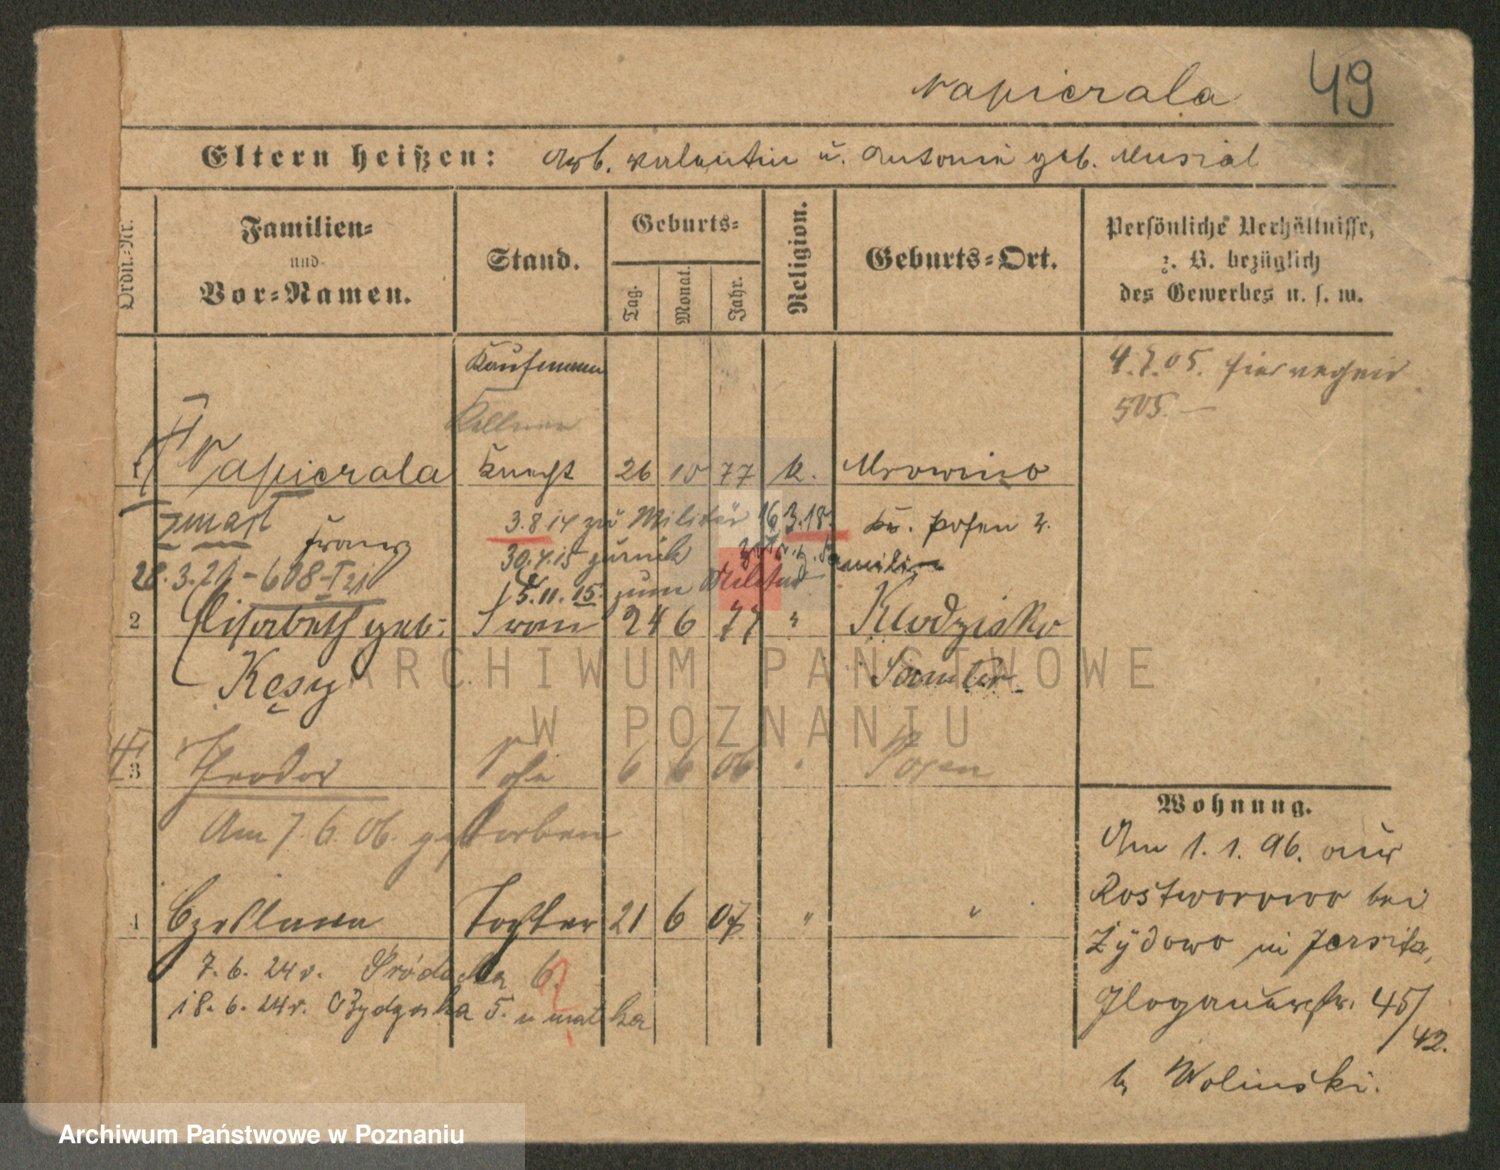 Napierala 49
Eltern heißen: Arb. Valentin u. Antonie geb. Musial
Ordn.-Nr.
Familien-
und
Vor-Namen.
Stand.
Geburts-
Tag.
Monat.
Jahr.
Religion.
Geburts-Ort.
Persönliche Verhältnisse,
z. B. bezüglich
des Gewerbes u. s. w.
Kaufmann
Kellner
4.7.05.
505.—
1 Napierala Knecht 26 10 77 k. Mrowino
zmarł Franz 3.8.14 zu Militär 16 3.18. Kr. Posen
30.4.15 zurück Familie
28.3.21 - 608-I 21
5.11.15. zum Militär
2 Elisabeth geb. Frau 24 6 77 " Klodzisko
Kęsy Samter
3 Theodor Sohn 6 6 06 " Posen
Am 7.6.06. gestorben
4 Czeslawa Tochter 21 6 07 " "
7.6.24 r. Śródecka 6.
18.6.24 r. Bydgoska 5. u matka
Wohnung.
Am 1.1.96. aus
Rostworowo bei
Żydowo in Jersitz,
Glogauerstr. 45/
42.
b. Wolinski.
ARCHIWUM PAŃSTWOWE
W POZNANIU
Archiwum Państwowe w Poznaniu